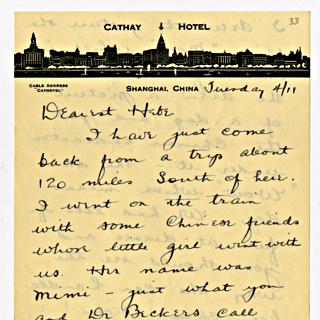 33
CATHAY HOTEL
CABLE ADDRESS
"CATHOTEL"
SHANGHAI, CHINA Tuesday 4/11
Dearest Hebe
I have just come
back from a trip about
120 miles South of here.
I went on the train
with some Chinese friends
whose little girl went with
us. Her name was
Mimi - just what you
and Dr Beckers call